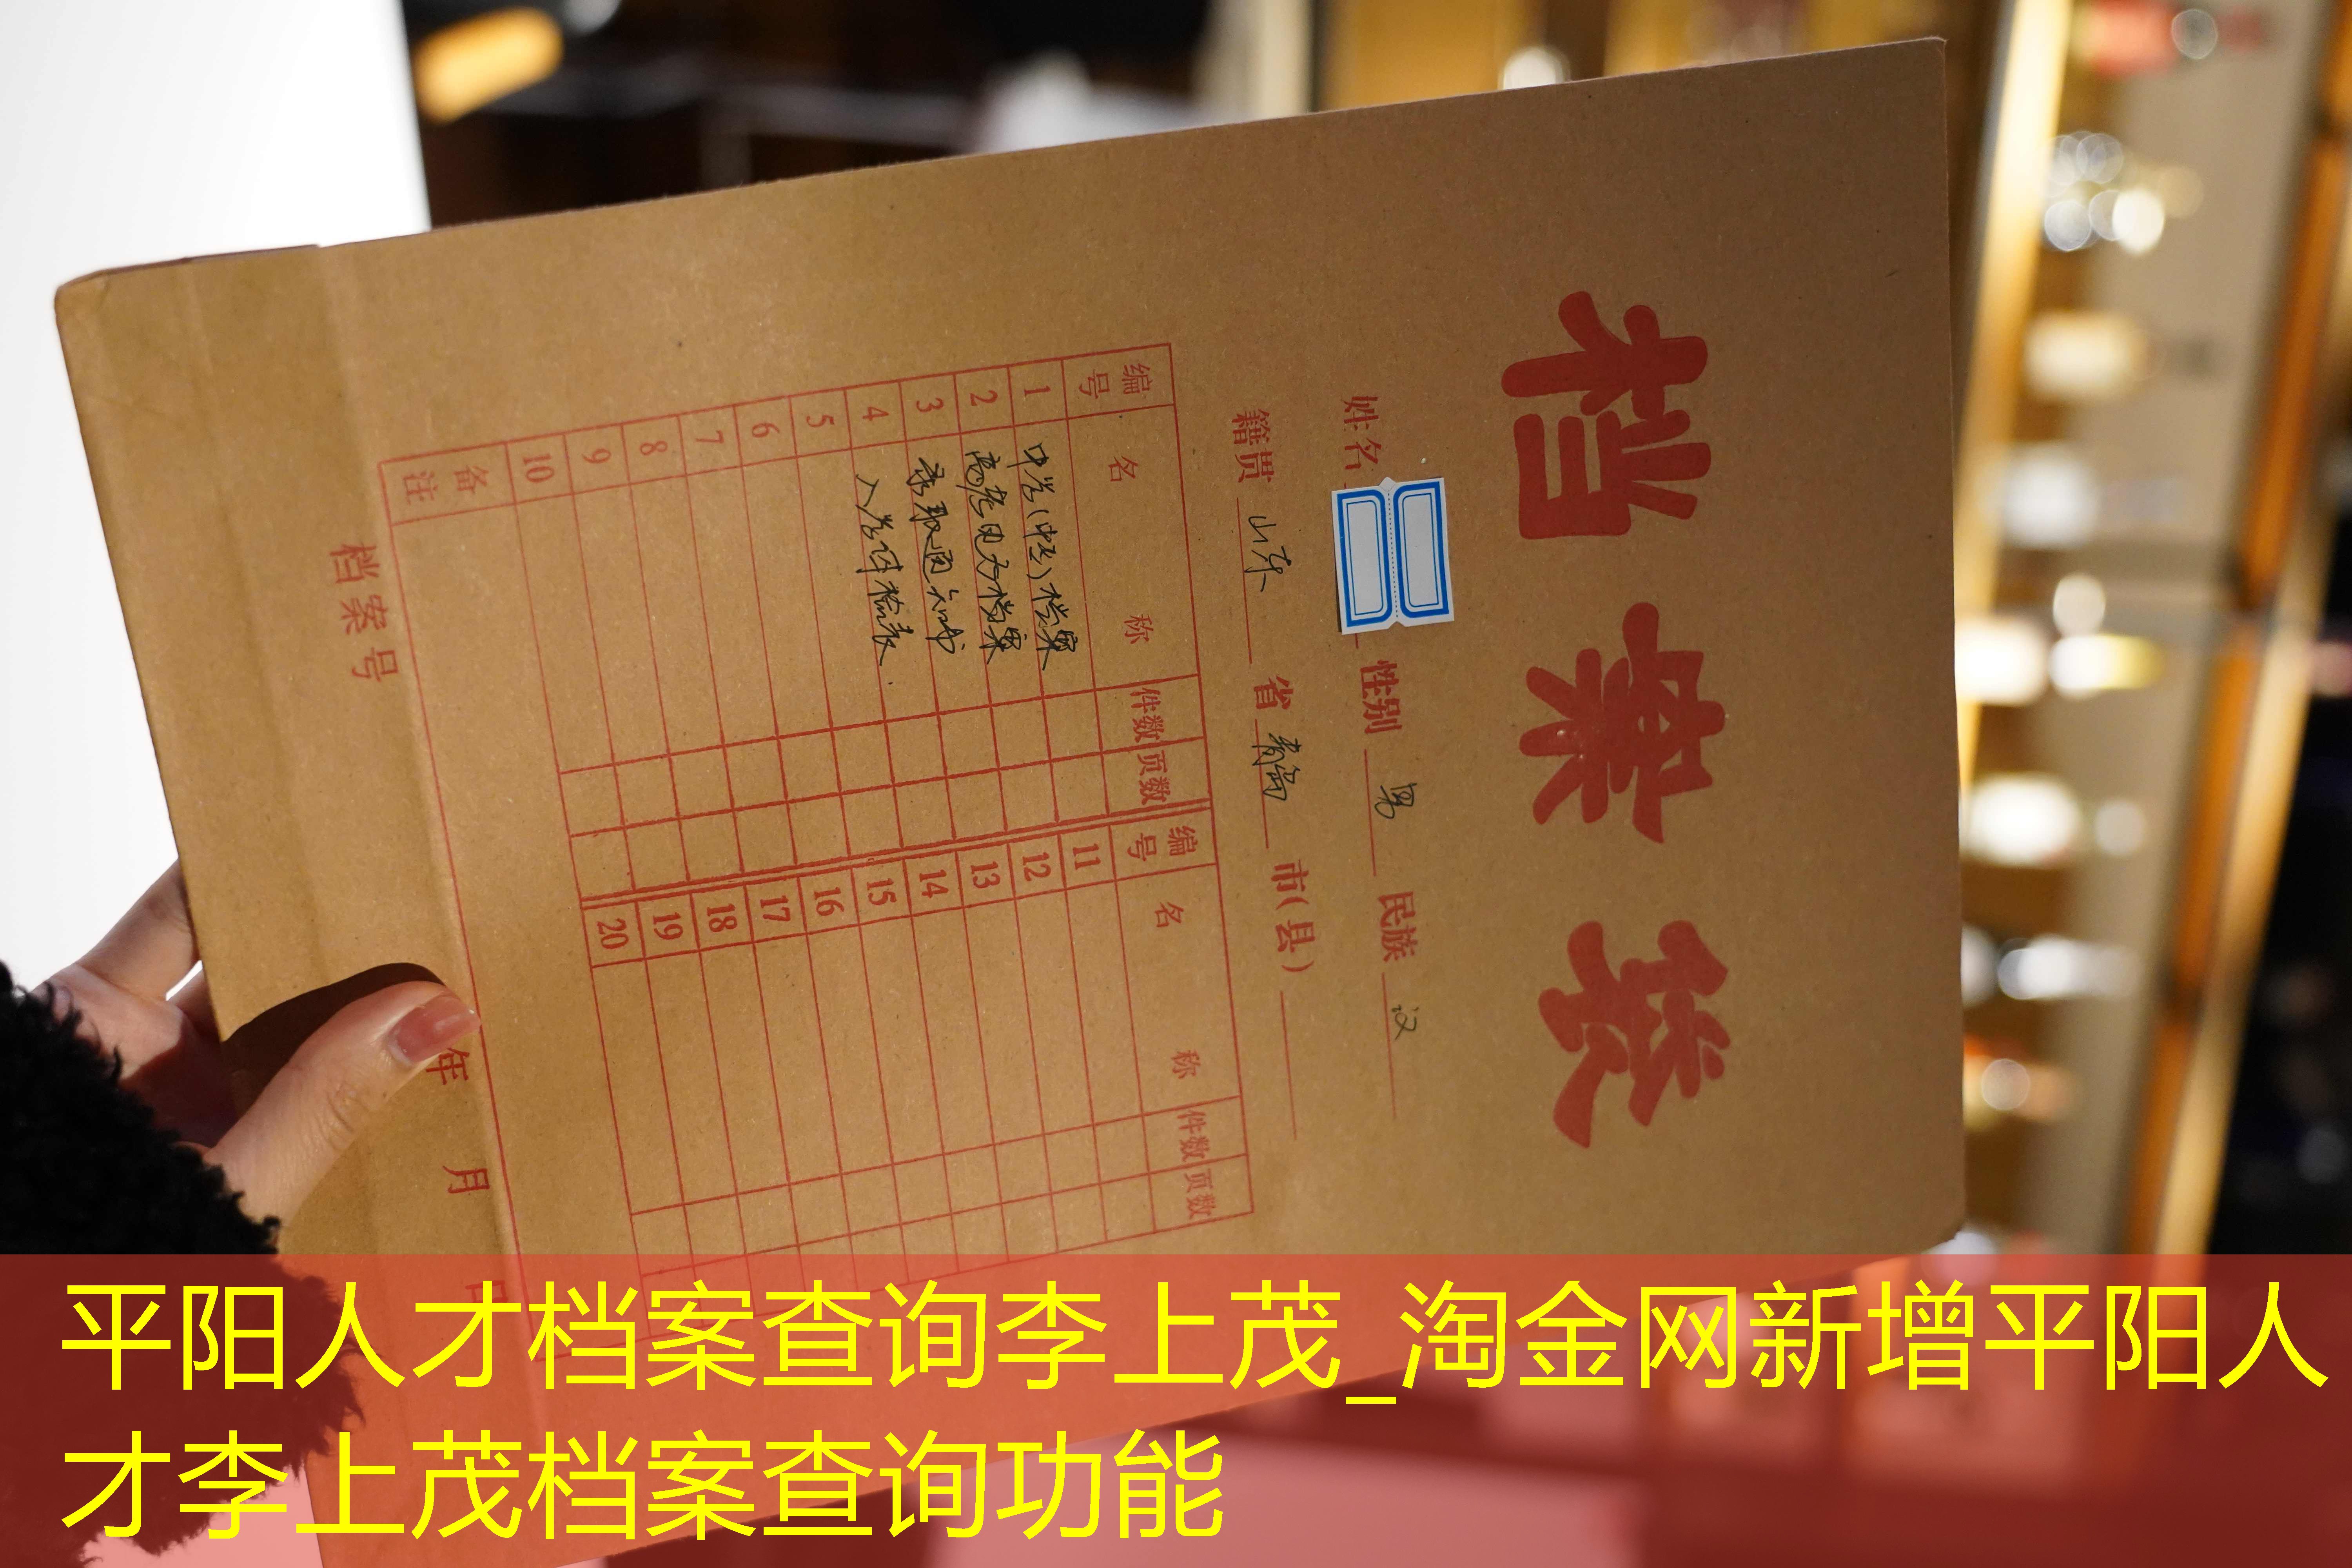 档案袋
姓名 性别 男 民族 汉
籍贯 山东 省 青岛 市(县)
编号 名称 件数 页数 编号 名称 件数 页数
1 中学(中专)档案 11
2 高考电子档案 12
3 录取通知书 13
4 入学体检表 14
5 15
6 16
7 17
8 18
9 19
10 20
备注
档案号 年 月 日
平阳人才档案查询李上茂_淘金网新增平阳人
才李上茂档案查询功能